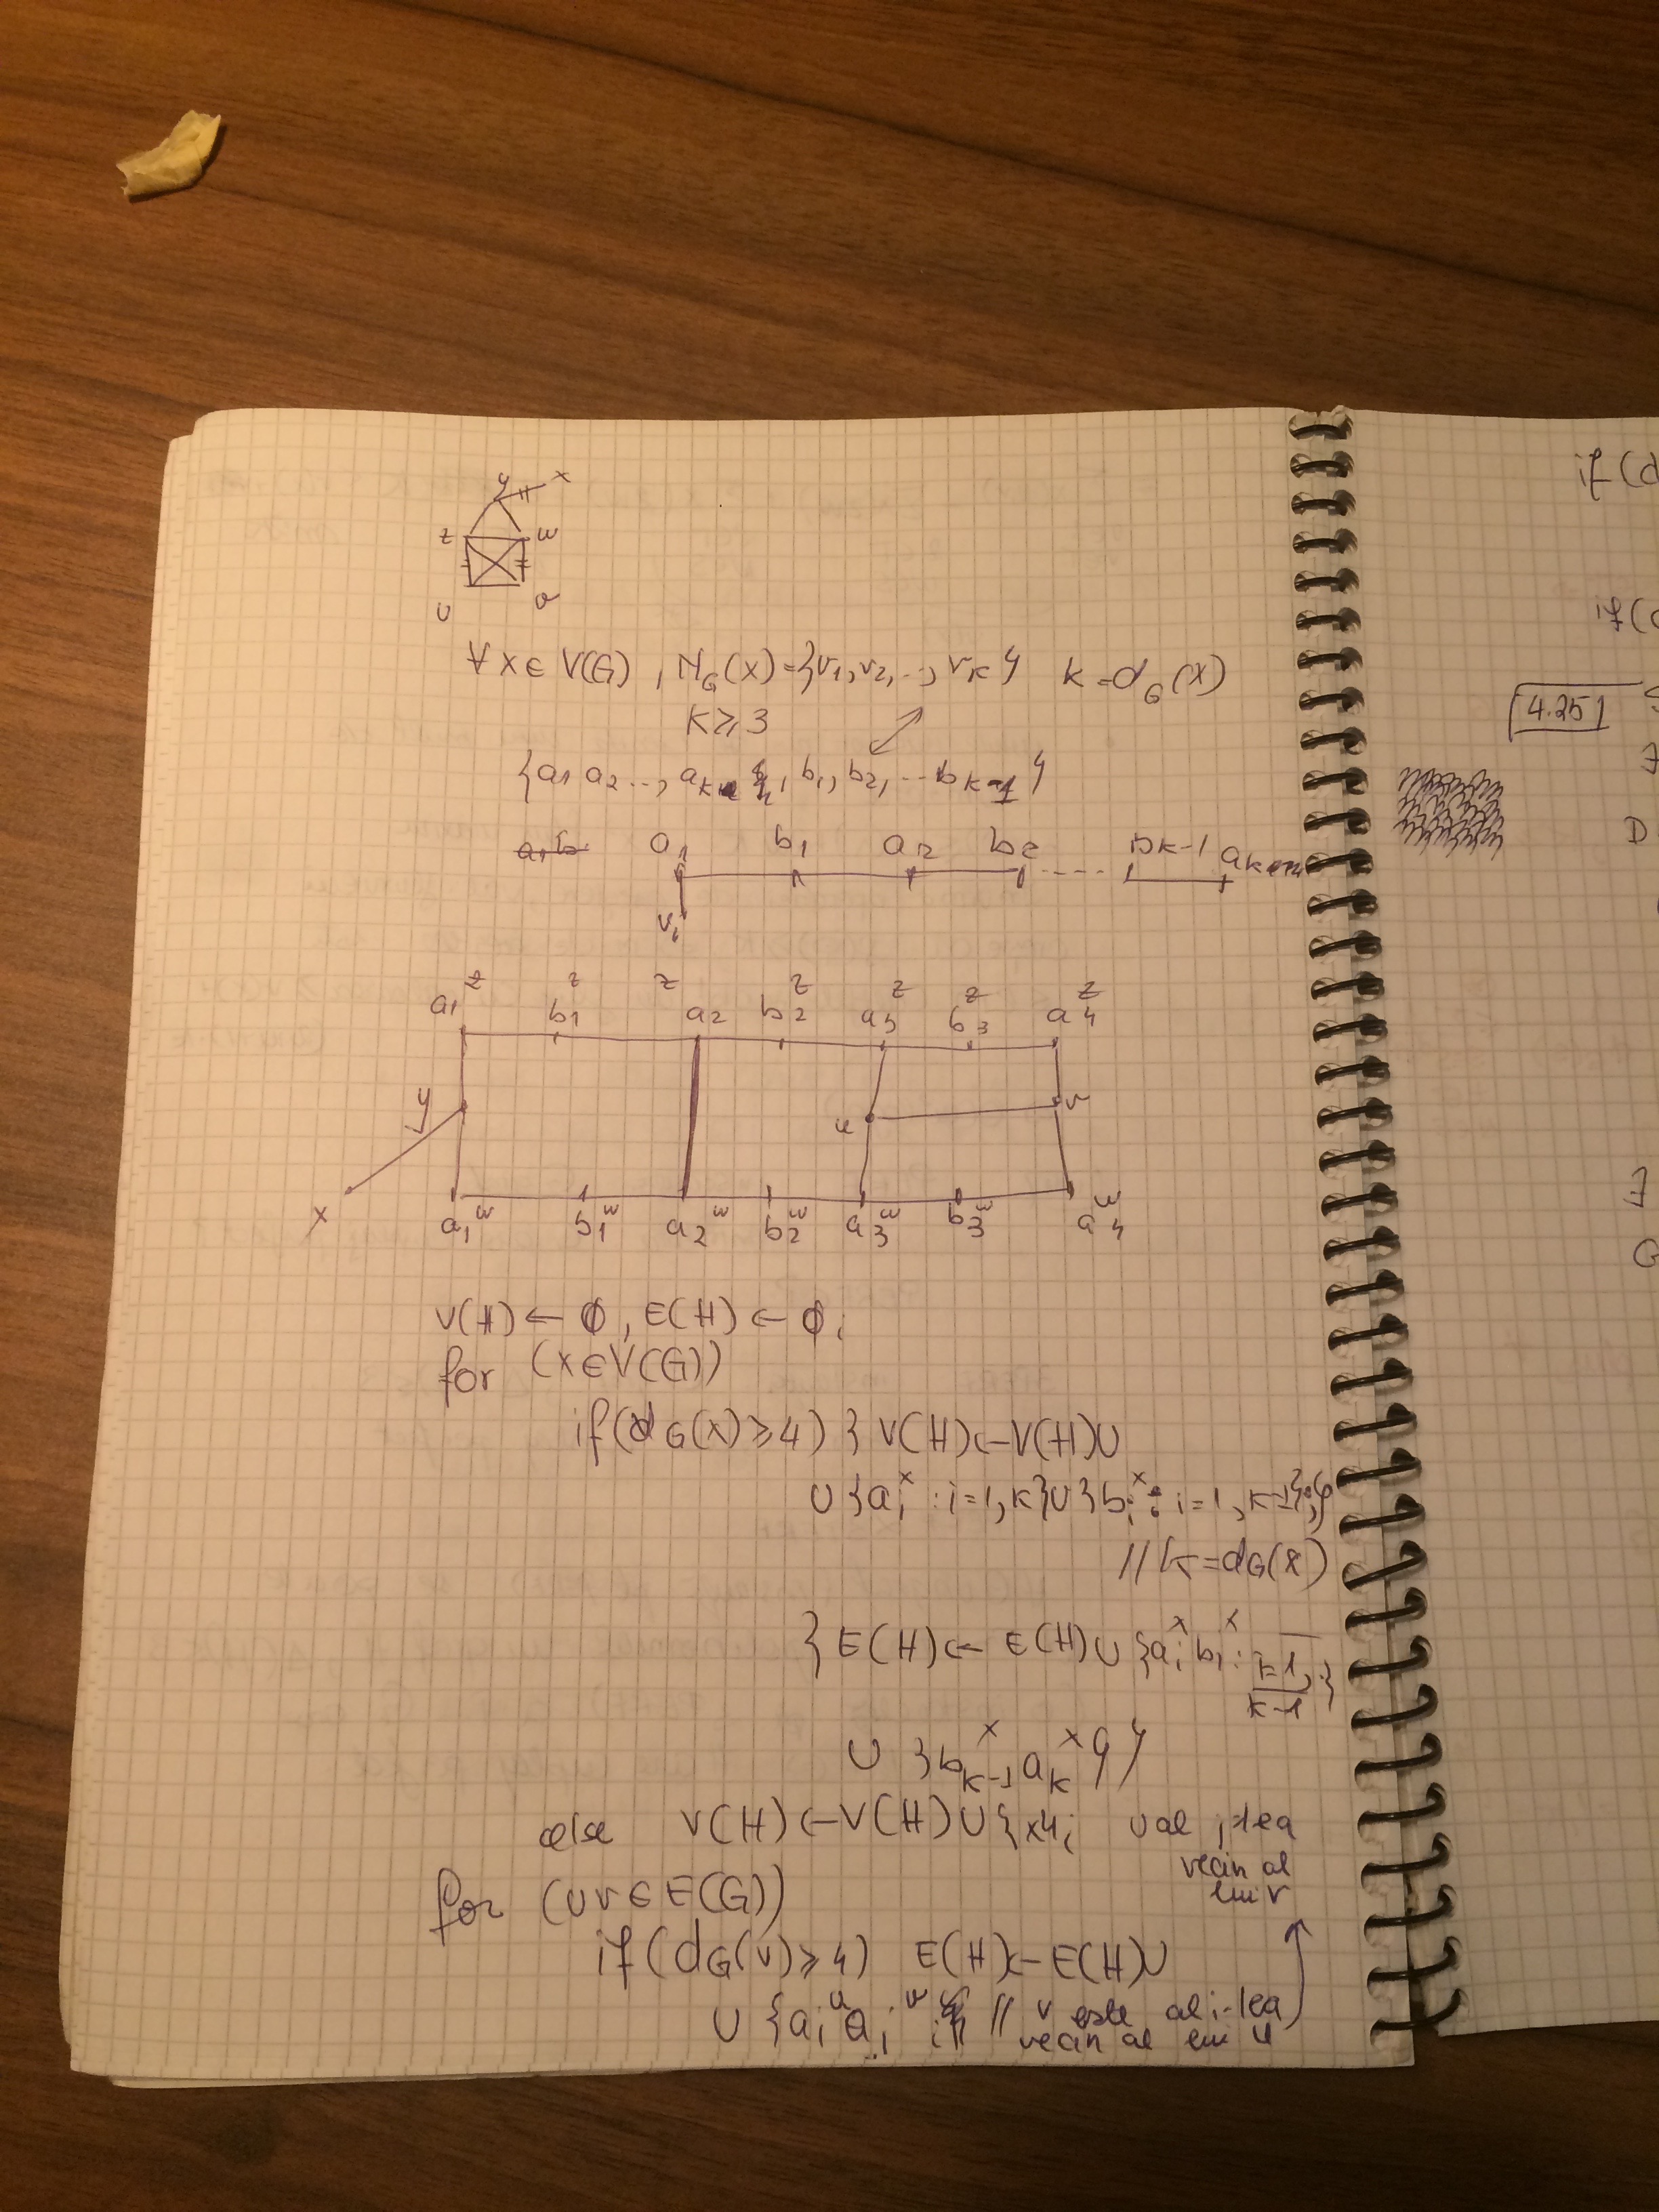 y x
z w
u v
∀ x ∈ V(G) , N_G(x) = {v1, v2, .., vk} k = d_G(x)
k ≥ 3
{a1 a2 ..., ak, b1, b2, ... bk-1}
a1 b1 a2 b2 ---- bk-1
vi
a1^z b1^z a2^z b2^z a3^z b3^z a4^z
y u v
x a1^w b1^w a2^w b2^w a3^w b3^w a4^w
V(H) ← ∅ , E(H) ← ∅;
for (x ∈ V(G))
if (d_G(x) ≥ 4) { V(H) ← V(H) ∪
∪ {ai^x : i=1,k} ∪ {bi^x : i=1,k-1};
// k = d_G(x)
E(H) ← E(H) ∪ {ai^x bi^x : i=1, k-1}
∪ {bk-1^x ak^x}}
else V(H) ← V(H) ∪ {x}; u al j-lea
vecin al
lui v
for (uv ∈ E(G))
if (d_G(v) ≥ 4) E(H) ← E(H) ∪
∪ {ai^u aj^v} // v este al i-lea
vecin al lui u
if (d
if (
4.25
D